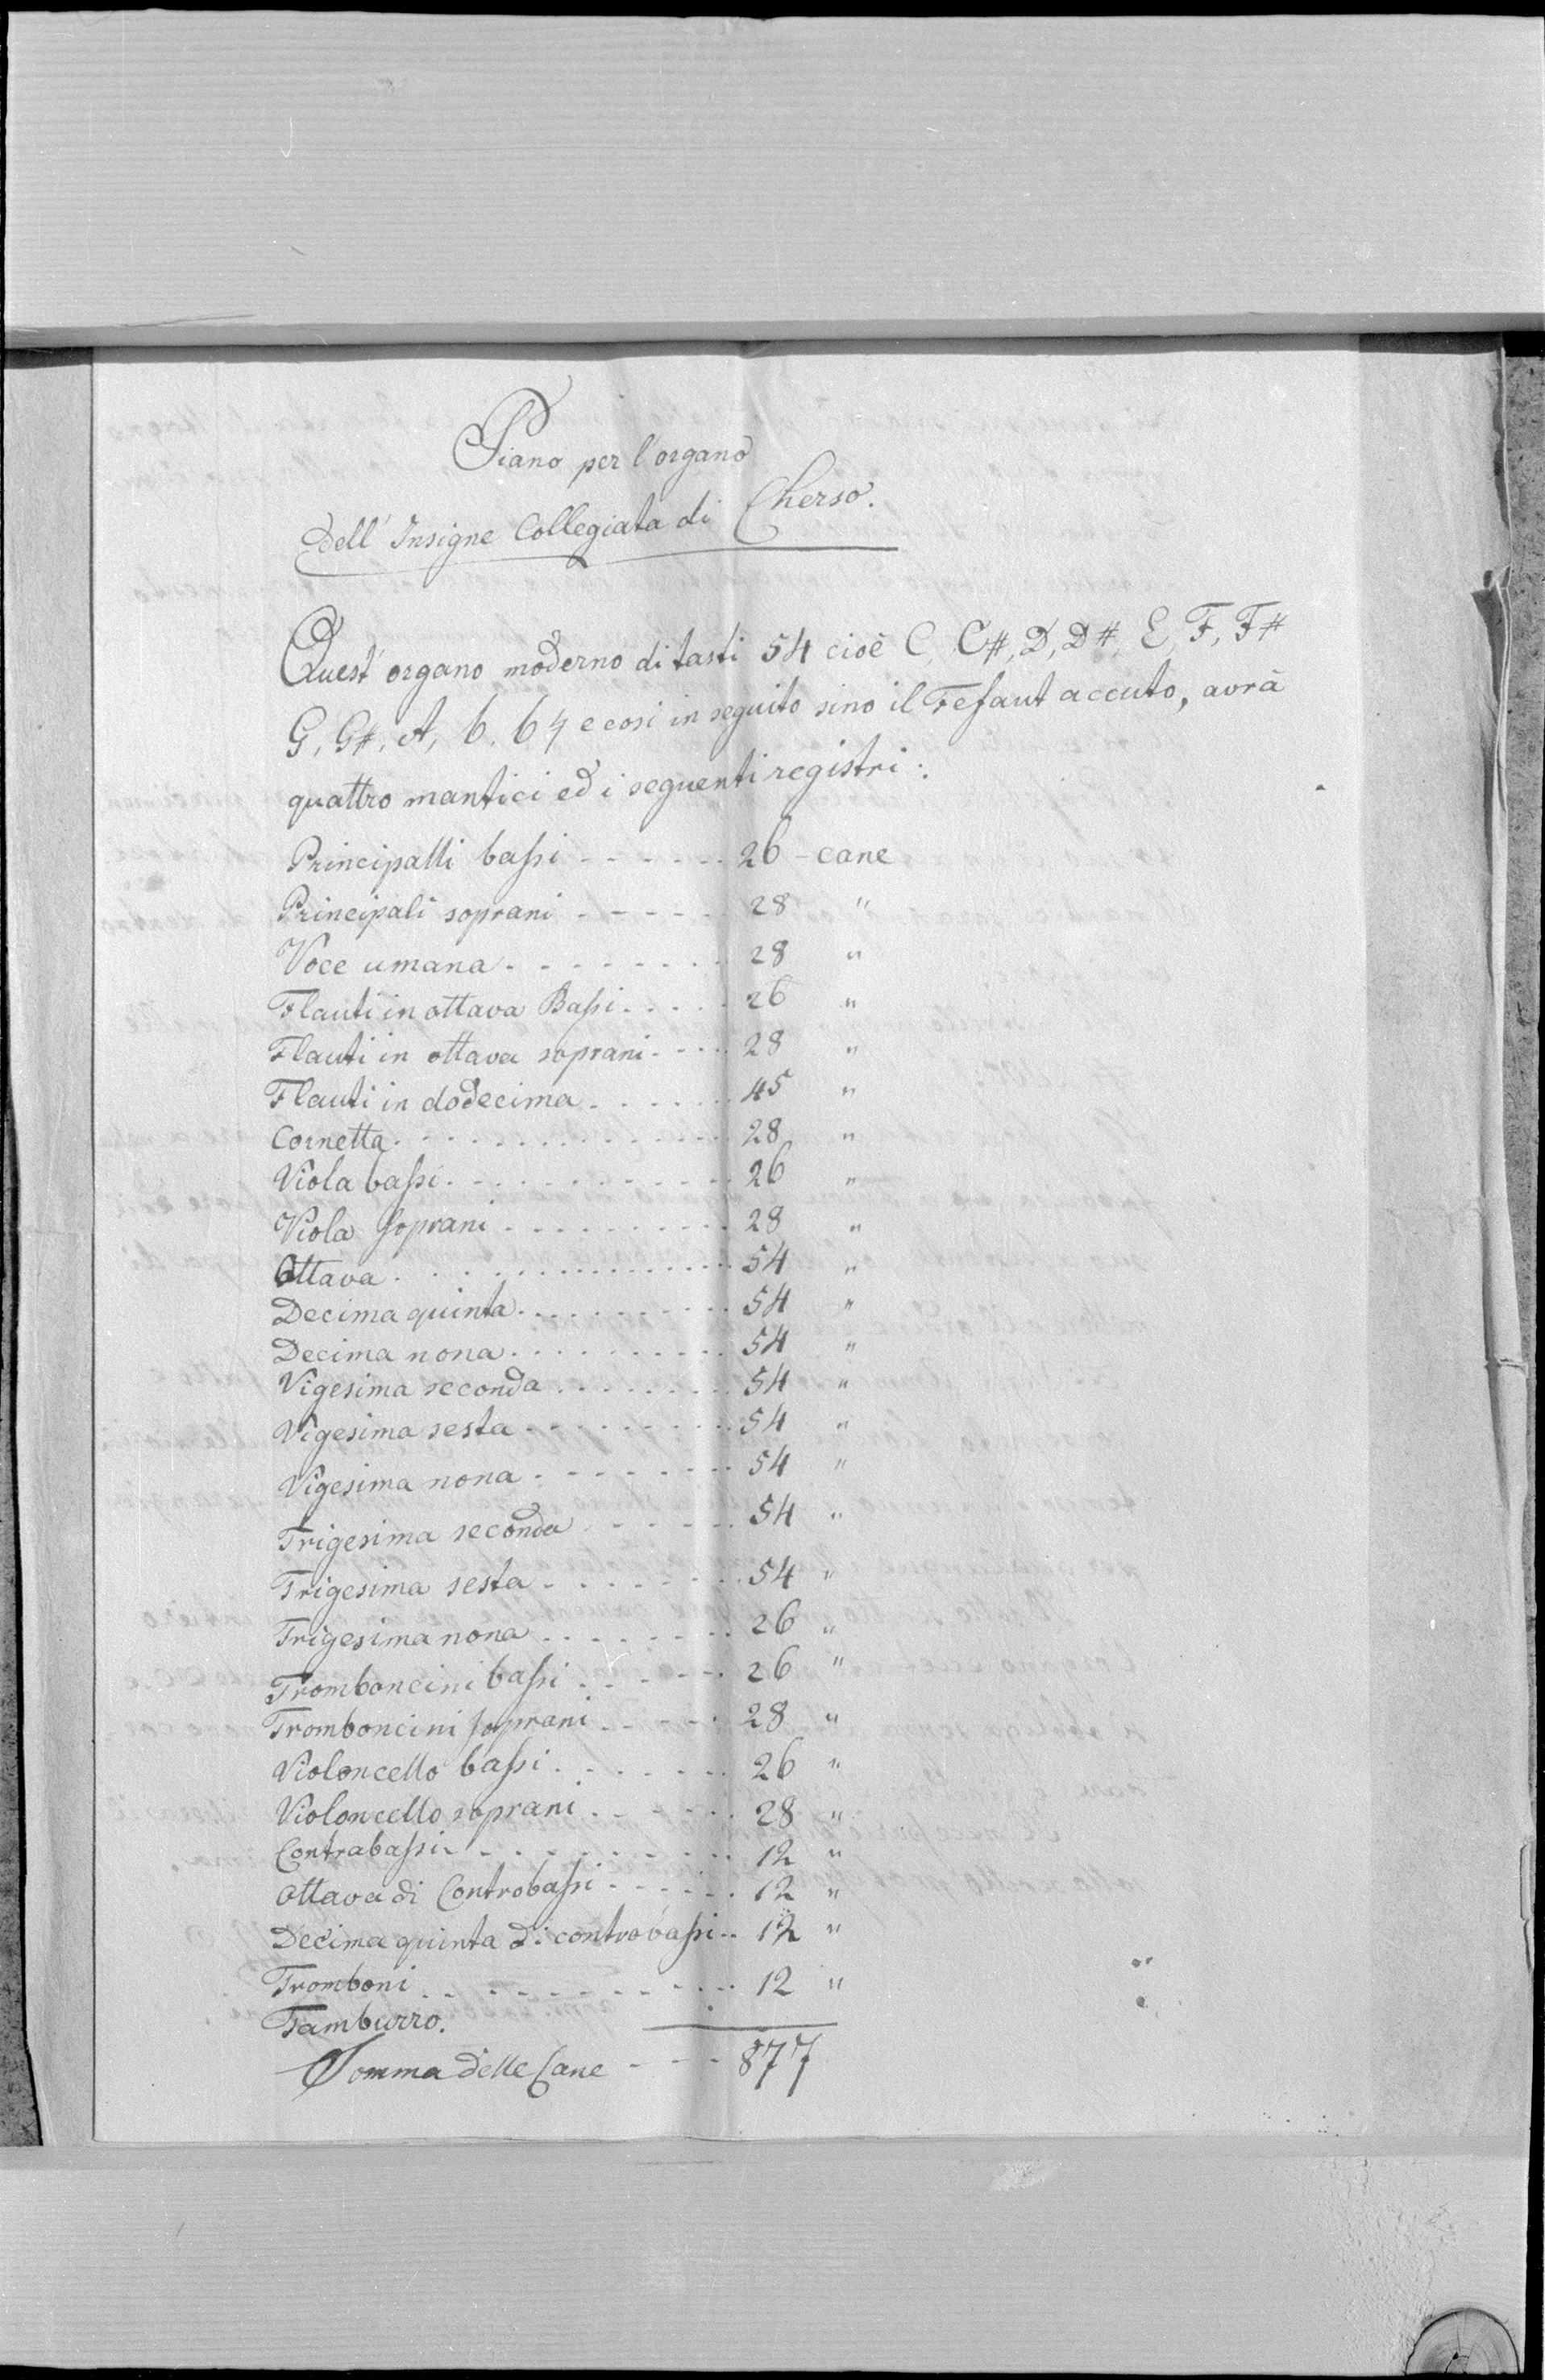 Piano per l'organo
Dell' Insigne Collegiata di Cherso.
Quest' organo moderno di tasti 54 cioè C, C#, D, D#, E, F, F#
G, G#, A, b, b♮ e cosi in seguito sino il Fefaut accuto, avrà
quattro mantici ed i seguenti registri:
Principalli baſsi - - - - - - 26 - cane
Principali soprani - - - - - 28 "
Voce umana - - - - - - - - 28 "
Flauti in ottava Baſsi - - - - 26 "
Flauti in ottava soprani - - - - 28 "
Flauti in dodecima - - - - - - 45 "
Cornetta - - - - - - - - - - - - - 28 "
Viola baſsi - - - - - - - - - - - 26 "
Viola ſoprani - - - - - - - - - - 28 "
Ottava - - - - - - - - - - - - - - 54 "
Decima quinta - - - - - - - - - - 54 "
Decima nona - - - - - - - - - - 54 "
Vigesima seconda - - - - - - - - 54 "
Vigesima sesta - - - - - - - - - 54 "
Vigesima nona - - - - - - - - 54 "
Trigesima seconda - - - - - 54 "
Trigesima sesta - - - - - - - - 54 "
Trigesima nona - - - - - - - - 26 "
Tromboncini baſsi - - - - - - 26 "
Tromboncini ſoprani - - - - - 28 "
Violoncello baſsi - - - - - - - 26 "
Violoncello soprani - - - - - - 28 "
Contrabaſsi - - - - - - - - - - 12 "
Ottava di Controbaſsi - - - - - - 12 "
Decima quinta di controbaſsi - - 12 "
Tromboni - - - - - - - - - - - 12 "
Tamburro.
Somma delle Cane - - - 877